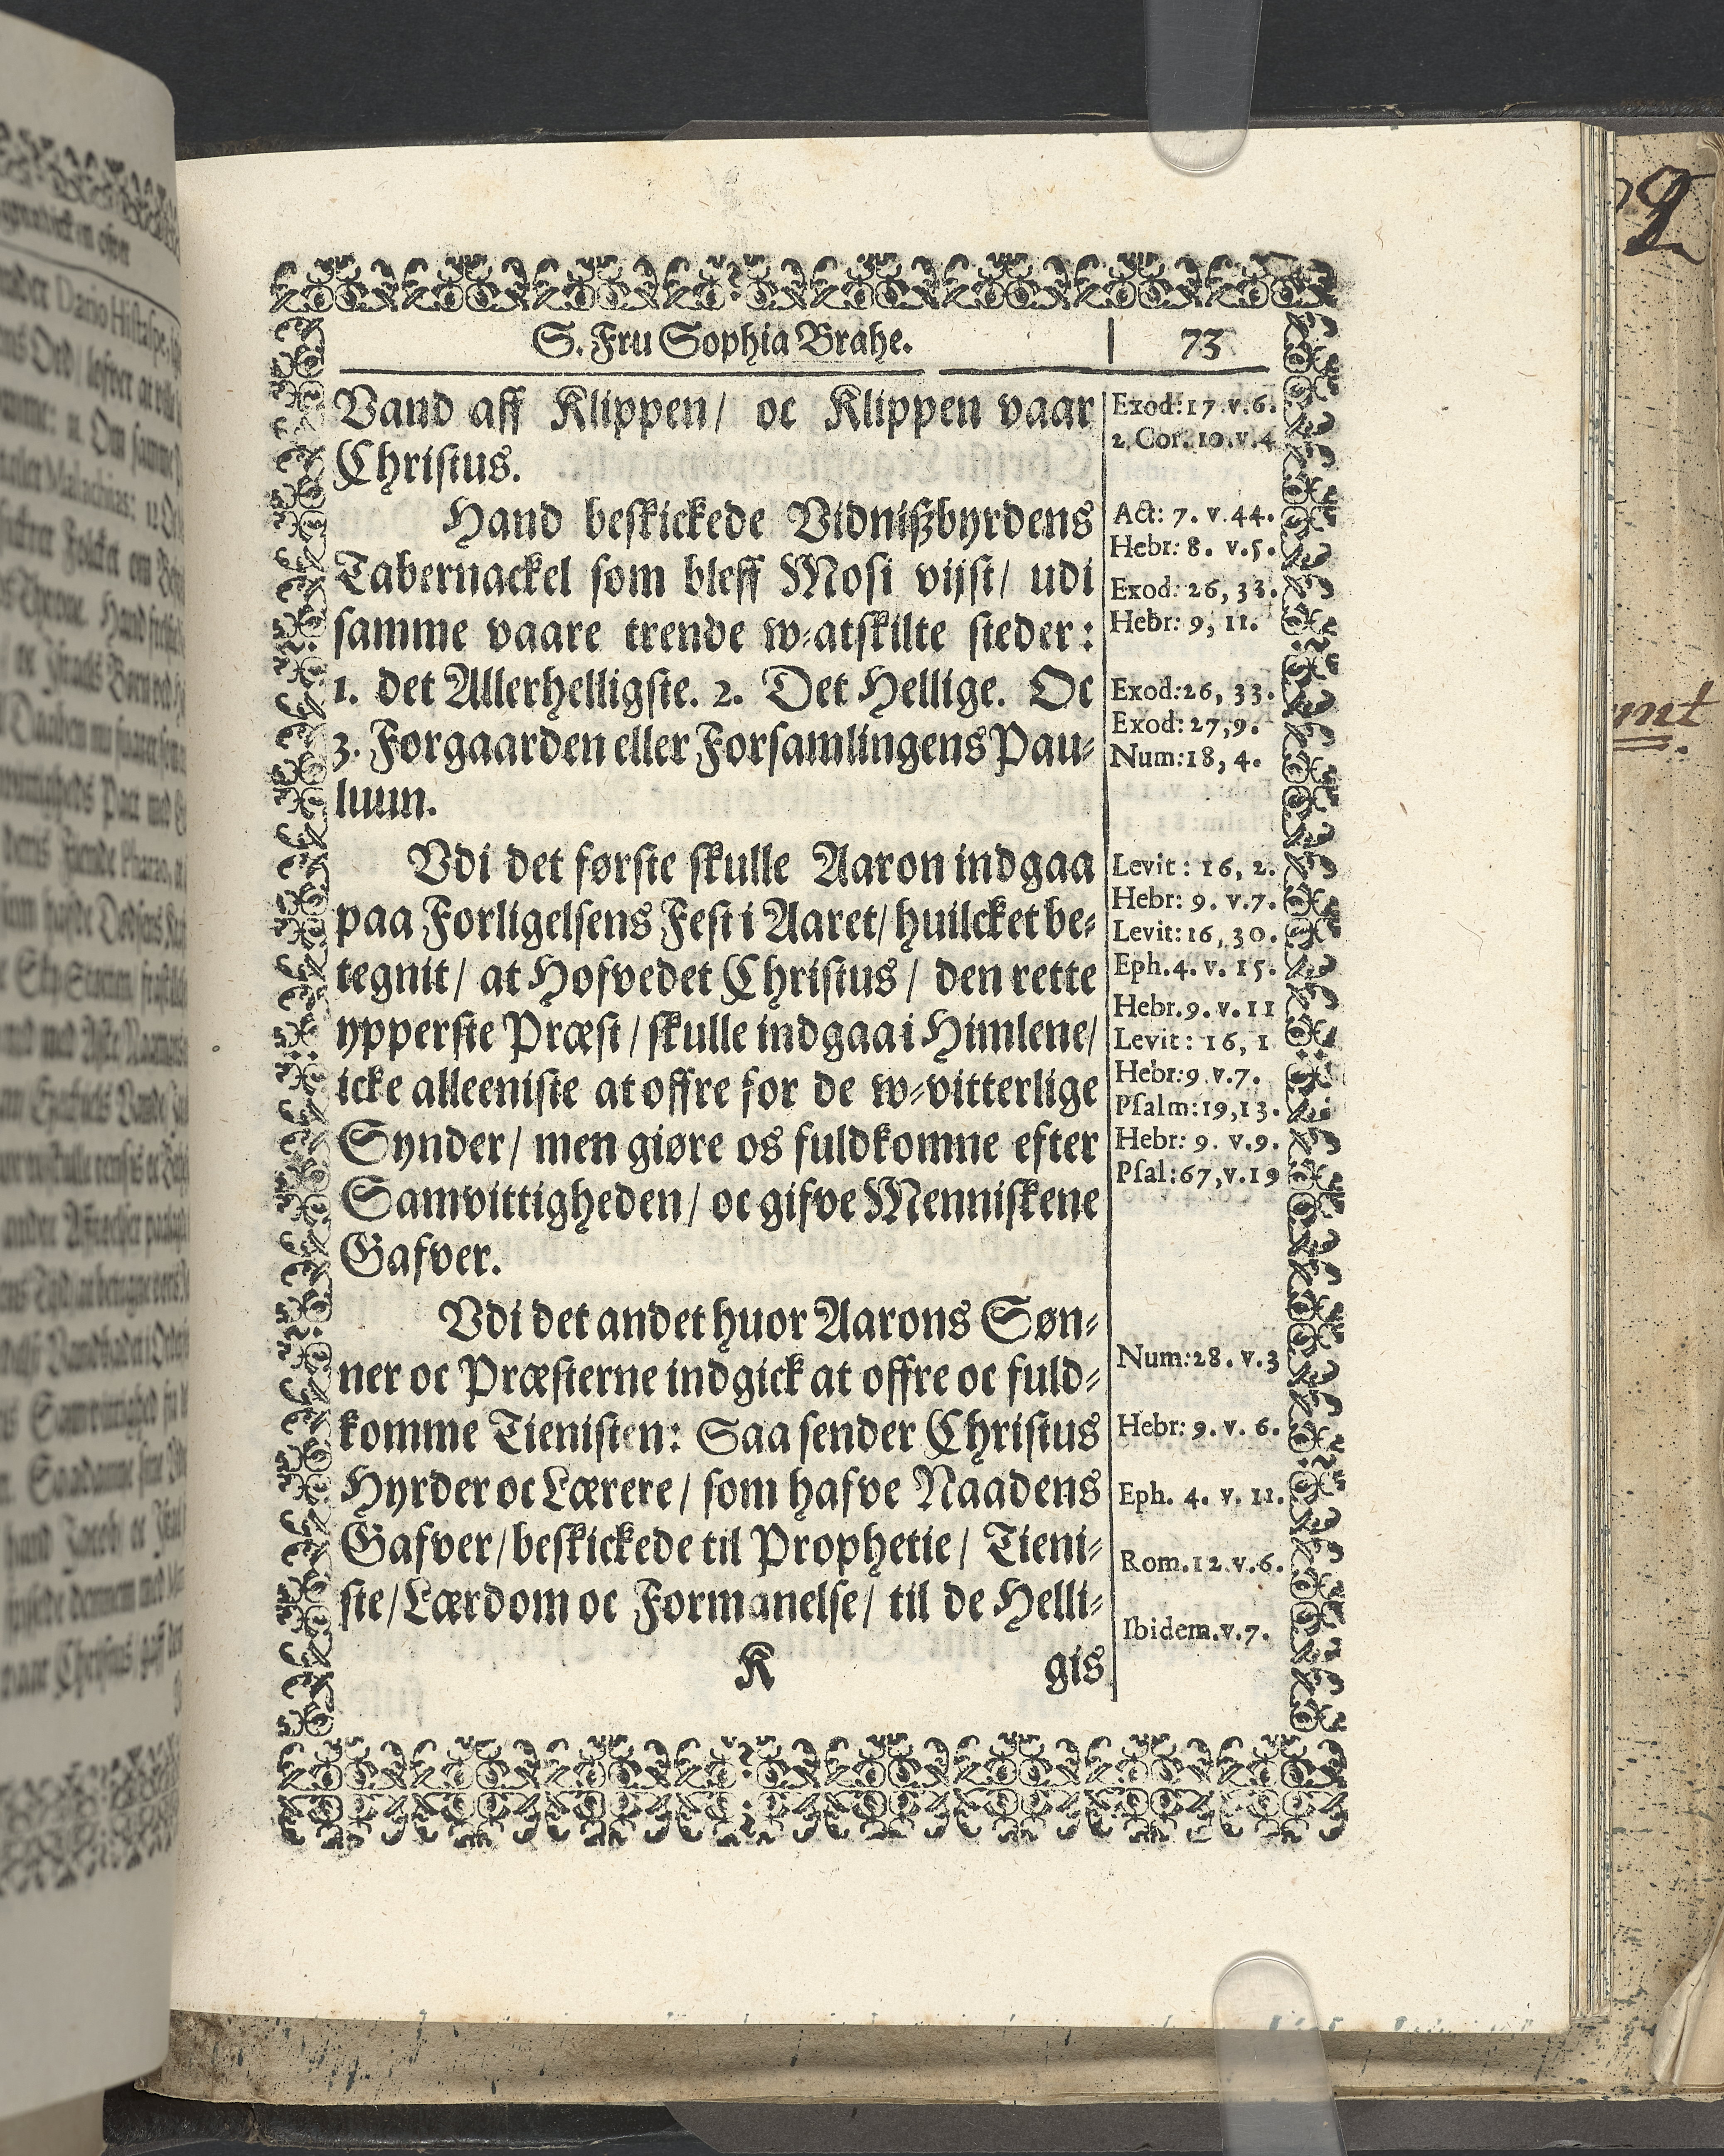 S. Fru Sophia Brahe. 73
Vand aff Klippen/ oc Klippen vaar
Christus.
Hand beskickede Vidnißbyrdens
Tabernackel som bleff Mosi vijst/ udi
samme vaare trende w-atskilte steder:
1. det Allerhelligste. 2. Det Hellige. Oc
3. Forgaarden eller Forsamlingens Pau-
luun.
Vdi det første skulle Aaron indgaa
paa Forligelsens Fest i Aaret/ huilcket be-
tegnit/ at Hofvedet Christus/ den rette
ypperste Præst/ skulle indgaa i Himlene/
icke alleeniste at offre for de w-vitterlige
Synder/ men giøre os fuldkomne efter
Samvittigheden/ oc gifve Menniskene
Gafver.
Vdi det andet huor Aarons Søn-
ner oc Præsterne indgick at offre oc fuld-
komme Tienisten: Saa sender Christus
Hyrder oc Lærere/ som hafve Naadens
Gafver/ beskickede til Prophetie/ Tieni-
ste/ Lærdom oc Formanelse/ til de Helli-
K gis
Exod: 17. v. 6.
2. Cor. 10. v. 4
Act: 7. v. 44.
Hebr: 8. v. 5.
Exod: 26, 33.
Hebr: 9, 11.
Exod: 26, 33.
Exod: 27, 9.
Num: 18, 4.
Levit: 16, 2.
Hebr: 9. v. 7.
Levit: 16, 30.
Eph. 4. v. 15.
Hebr. 9. v. 11
Levit: 16, 1
Hebr: 9 v. 7.
Psalm: 19, 13.
Hebr: 9. v. 9.
Psal: 67, v. 19
Num: 28. v. 3
Hebr: 9. v. 6.
Eph. 4. v. 11.
Rom. 12. v. 6.
Ibidem. v. 7.